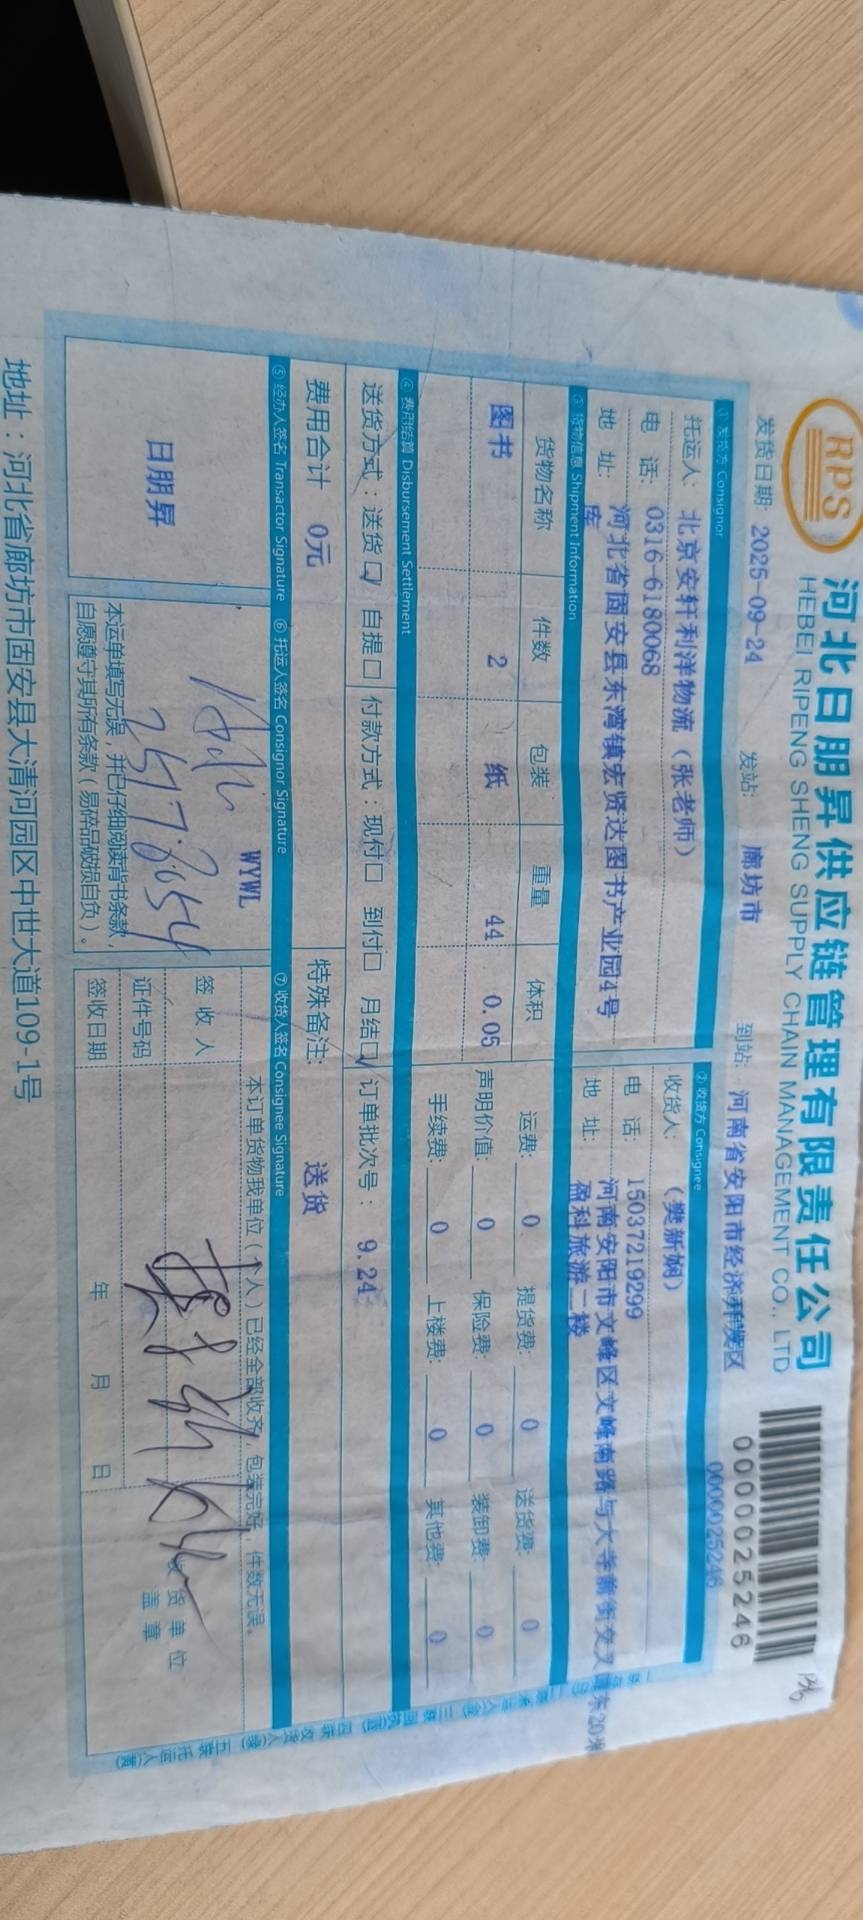 RPS
河北日朋昇供应链管理有限责任公司
HEBEI RIPENG SHENG SUPPLY CHAIN MANAGEMENT CO., LTD
0000025246
0000025246
发货日期: 2025-09-24 发站: 廊坊市 到站: 河南省安阳市经济开发区
① 发货方 Consignor
② 收货方 Consignee
托运人: 北京安轩利洋物流（张老师）
收货人: （樊新娴）
电 话: 0316-6180068
电 话: 15037219299
地 址: 河北省固安县东湾镇宏贤达图书产业园4号
库
地 址: 河南安阳市文峰区文峰南路与大寺前街交叉口东20米
盈科旅游二楼
③ 货物信息 Shipment Information
货物名称 件数 包装 重量 体积
图书 2 纸 44 0.05
运费: 0 提货费: 0 送货费: 0
声明价值: 0 保险费: 0 装卸费: 0
手续费: 0 上楼费: 0 其他费: 0
④ 费用结算 Disbursement Settlement
送货方式：送货☑ 自提口 付款方式：现付口 到付口 月结☑ 订单批次号： 9.24
费用合计 0元 特殊备注： 送货
⑤ 经办人签名 Transactor Signature
⑥ 托运人签名 Consignor Signature
⑦ 收货人签名 Consignee Signature
日朋昇
WYWL
本运单填写无误，并已仔细阅读背书条款，
自愿遵守其所有条款（易碎品破损自负）。
本订单货物我单位（个人）已经全部收齐，包装完好，件数无误。
签 收 人
证件号码
签收日期 年 月 日
收货单位
盖 章
地址：河北省廊坊市固安县大清河园区中世大道109-1号